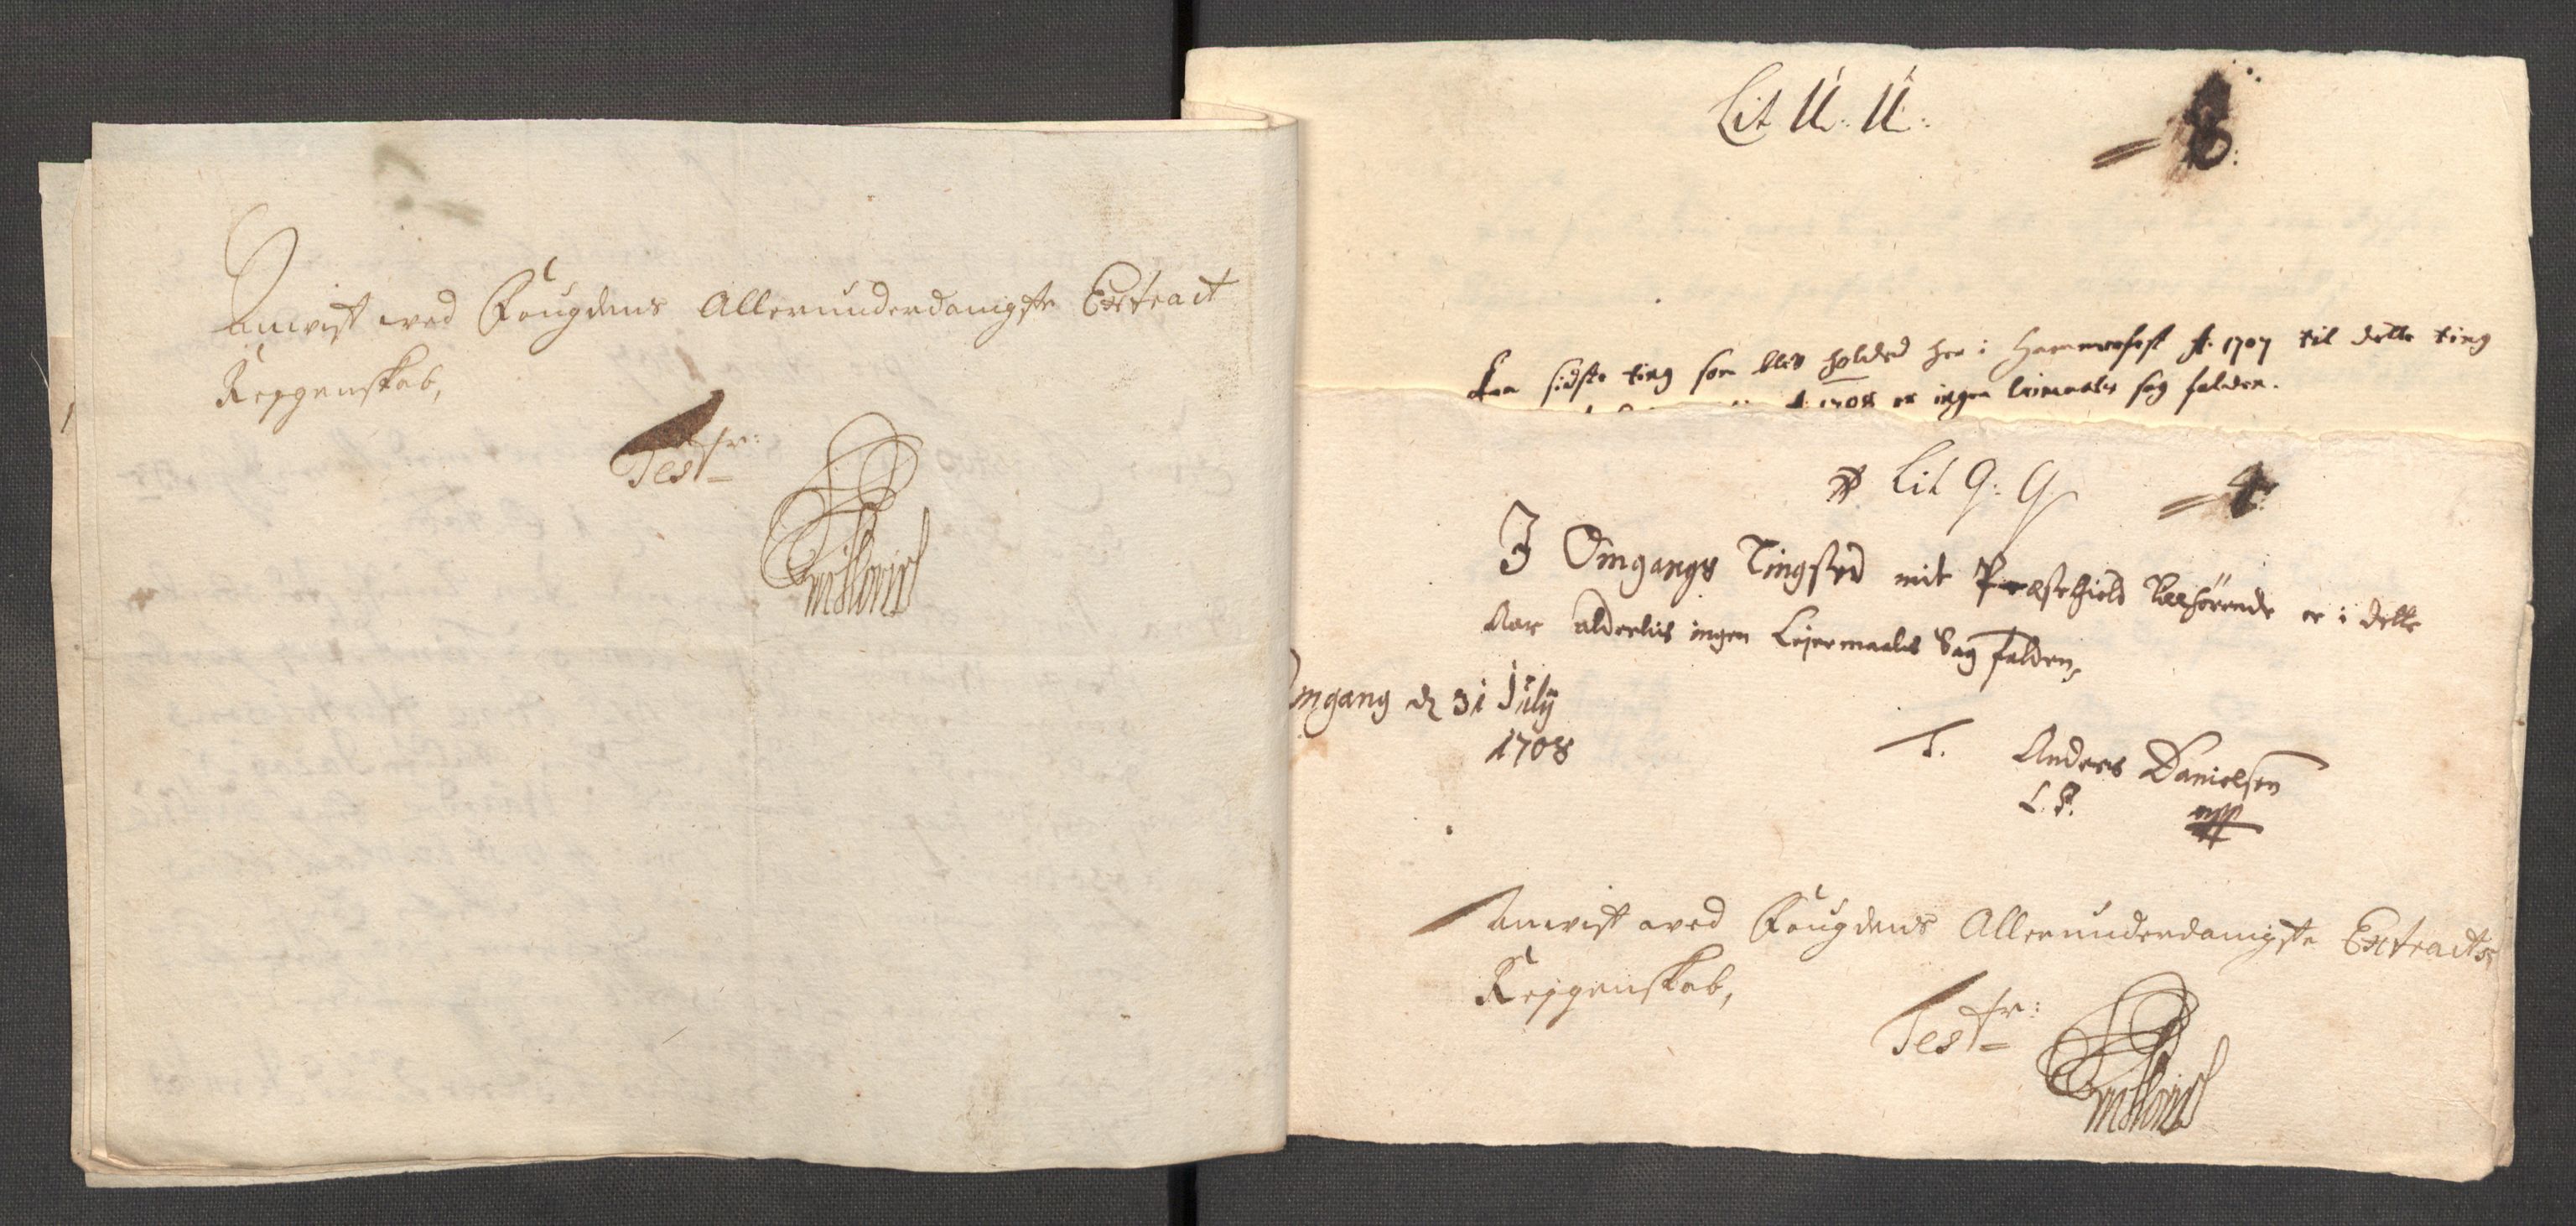 Anvist ved Fougdens Allerunderdanigste Extract
Reggenskab,
Testr:
Lit U: U:
Fra sidste ting som blev holded her i Hammerfest A: 1707 til dette ting
A: 1708 er ingen leimaals sag falden.
Lit Q: Q
4
I Omgangs Tingsted mit Præstegield Tilhørende er i dette
Aar alderlis ingen Lejermaals Sag falden,
Omgang d 31 July
1708
T. Anders Danielsen
L. S. mpp
Anvist ved Fougdens Allerunderdanigste Extracts
Reggenskab,
Testr: